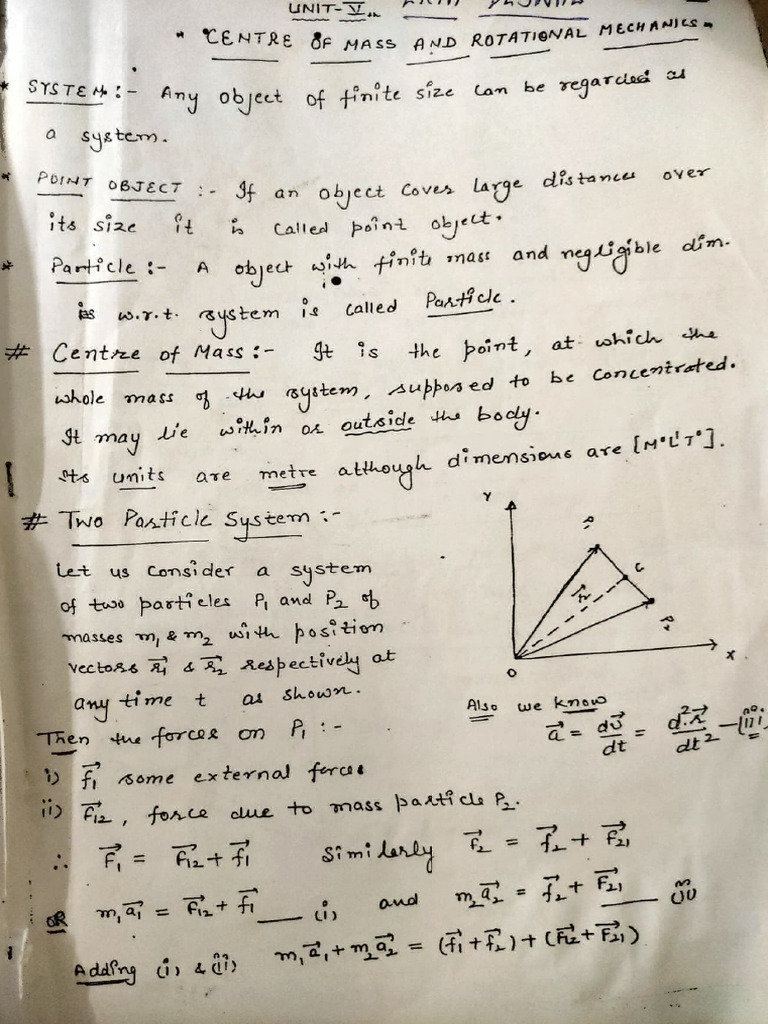 UNIT-V
* CENTRE OF MASS AND ROTATIONAL MECHANICS *
* SYSTEM :- Any object of finite size can be regarded as
a system.
* POINT OBJECT :- If an object cover large distances over
its size it is called point object.
* Particle :- A object with finite mass and negligible dim.
is w.r.t. system is called Particle.
# Centre of Mass :- It is the point, at which the
whole mass of the system, supposed to be concentrated.
It may lie within or outside the body.
Its units are metre although dimensions are [M⁰L¹T⁰].
# Two Particle System :-
Let us consider a system
of two particles P₁ and P₂ of
masses m₁ & m₂ with position
vectors r⃗₁ & r⃗₂ respectively at
any time t as shown.
Y
P₁
C
r⃗
P₂
O
X
Also we know
a⃗ = dv⃗/dt = d²r⃗/dt² — (iii)
Then the forces on P₁ :-
i) f⃗₁ some external forces
ii) F⃗₁₂, force due to mass particle P₂.
∴ F⃗₁ = F⃗₁₂ + f⃗₁ Similarly F⃗₂ = f⃗₂ + F⃗₂₁
OR m₁a⃗₁ = F⃗₁₂ + f⃗₁ — (i) and m₂a⃗₂ = f⃗₂ + F⃗₂₁ — (ii)
Adding (i) & (ii) m₁a⃗₁ + m₂a⃗₂ = (f⃗₁ + f⃗₂) + (F⃗₁₂ + F⃗₂₁)